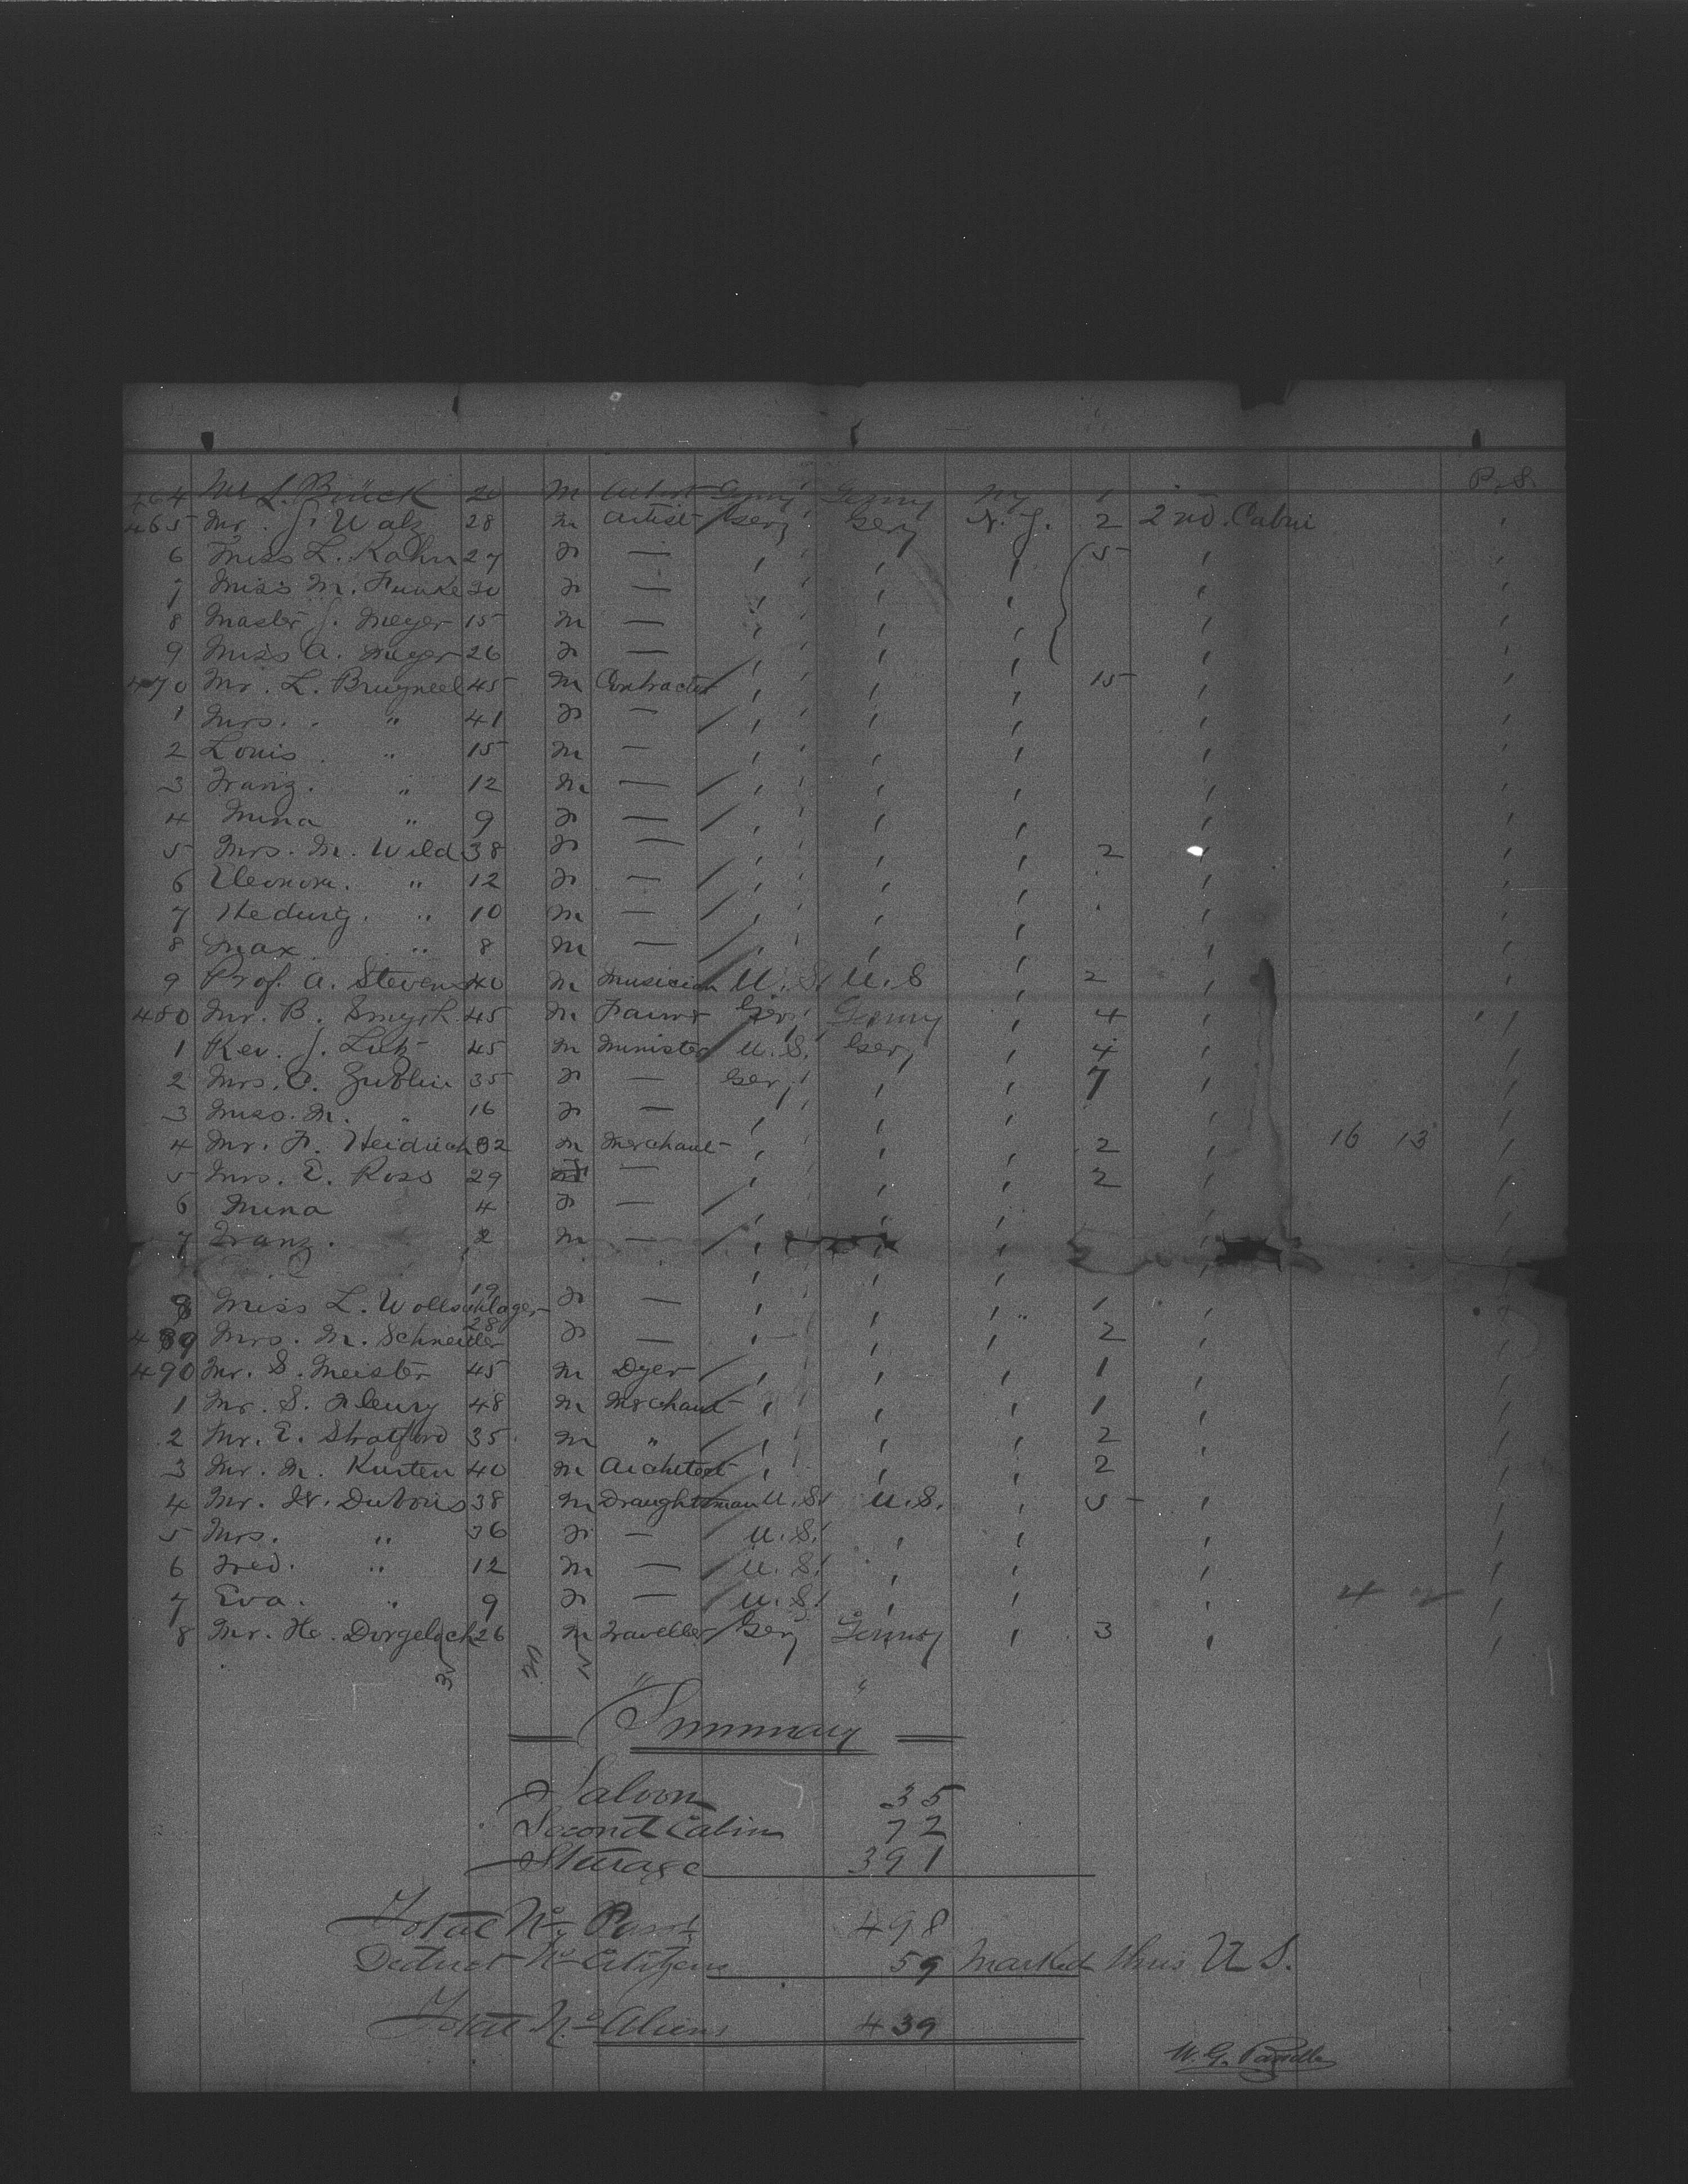 464 Mr L. Brück 20 M Artist Germy Germy NY 1 P.S.
465 Mr. J. Walz 28 M Artist Gery Gery N.J. 2 2nd. Cabin
6 Miss L. Kahn 27 F — 5
7 Miss M. Funke 30 F —
8 Master J. Meyer 15 M —
9 Miss A. Meyer 26 F —
470 Mr. L. Bruyneel 45 M Contractor 15
1 Mrs. " 41 F —
2 Louis " 15 M —
3 Franz. " 12 M —
4 Mina " 9 F —
5 Mrs. M. Wild 38 F — 2
6 Eleonora. " 12 F —
7 Hedwig. " 10 M —
8 Max " 8 M —
9 Prof. A. Stevens 40 M Musician U.S. U.S 2
480 Mr. B. Smyth 45 M Farmer Ger Germy 4
1 Rev. J. Lutz 45 M Minister U.S. Gery 4
2 Mrs. C. Zublin 35 F — Ger 7
3 Miss. M. " 16 F —
4 Mr. F. Heidrich 32 M Merchant 2 16 13
5 Mrs. E. Ross 29 — 2
6 Mina 4 F —
7 Franz. 2 M —
8 Miss L. Wollschlager 19 F — 1
489 Mrs. M. Schneider 28 F — 2
490 Mr. S. Meister 45 M Dyer 1
1 Mr. S. Fleury 48 M Merchant 1
2 Mr. E. Stratford 35 M " 2
3 Mr. M. Kursten 40 M Architect 2
4 Mr. W. Dubois 38 M Draughtsman U.S. U.S. 5
5 Mrs. " 36 F — U.S.
6 Fred. " 12 M — U.S.
7 Eva. " 9 F — U.S. 4
8 Mr. He. Dorgeloch 26 M Traveller Gery Germy 3
Summary
Saloon 35
Second Cabin 72
Steerage 391
Total No. Pass. 498
Deduct No Citizens 59 Marked thus U S.
Total No. Aliens 439
W. G.